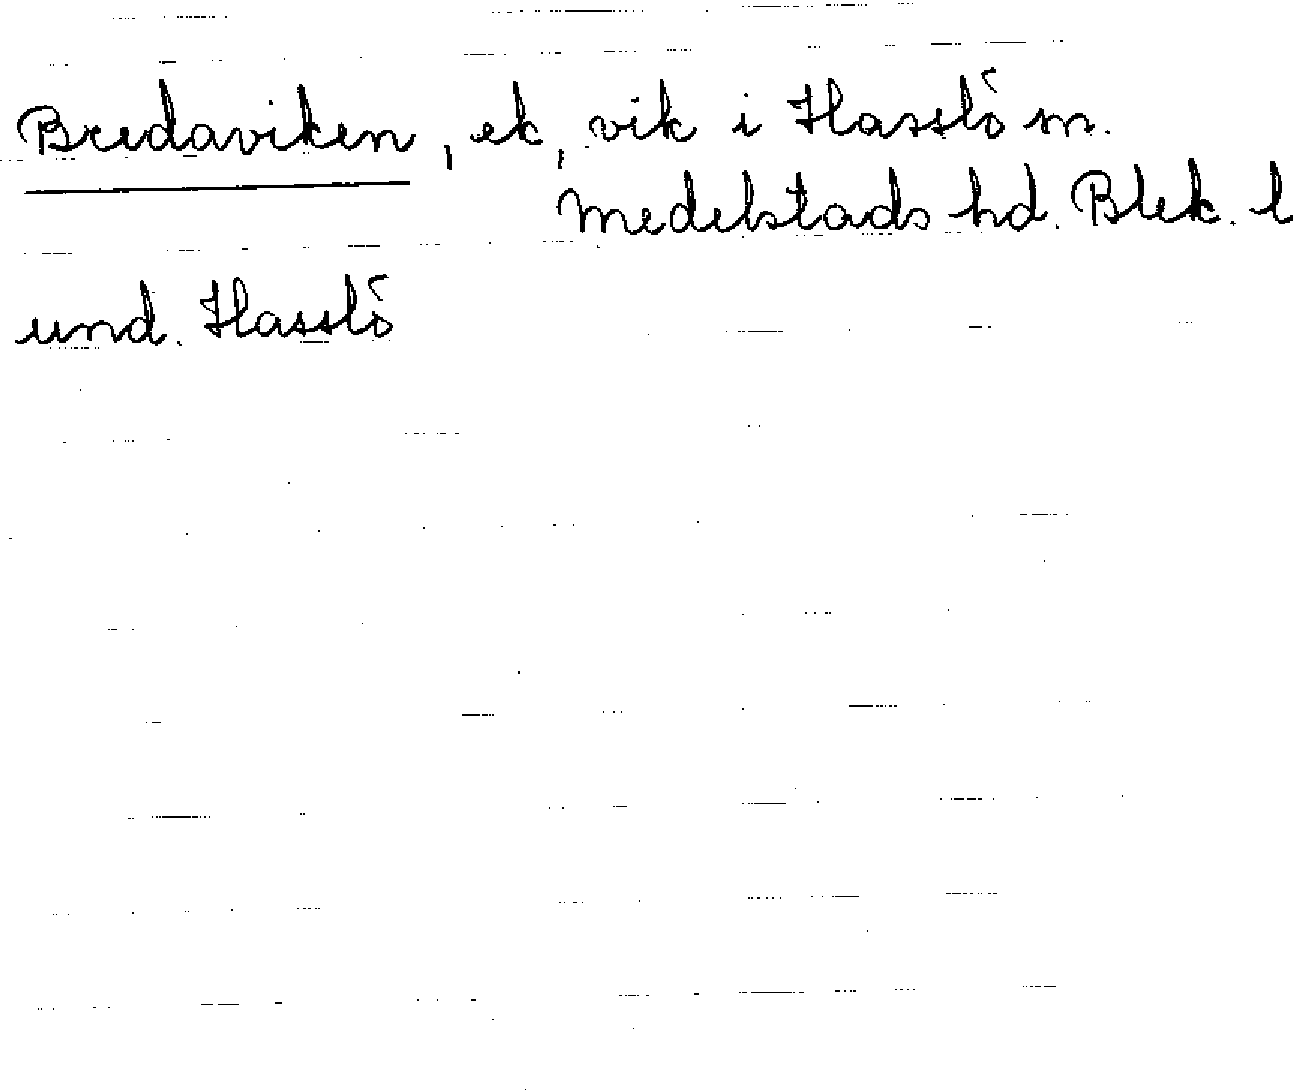 Bredaviken, ek, vik i Hasslö m.
Medelstads hd. Blek. l
und. Hasslö